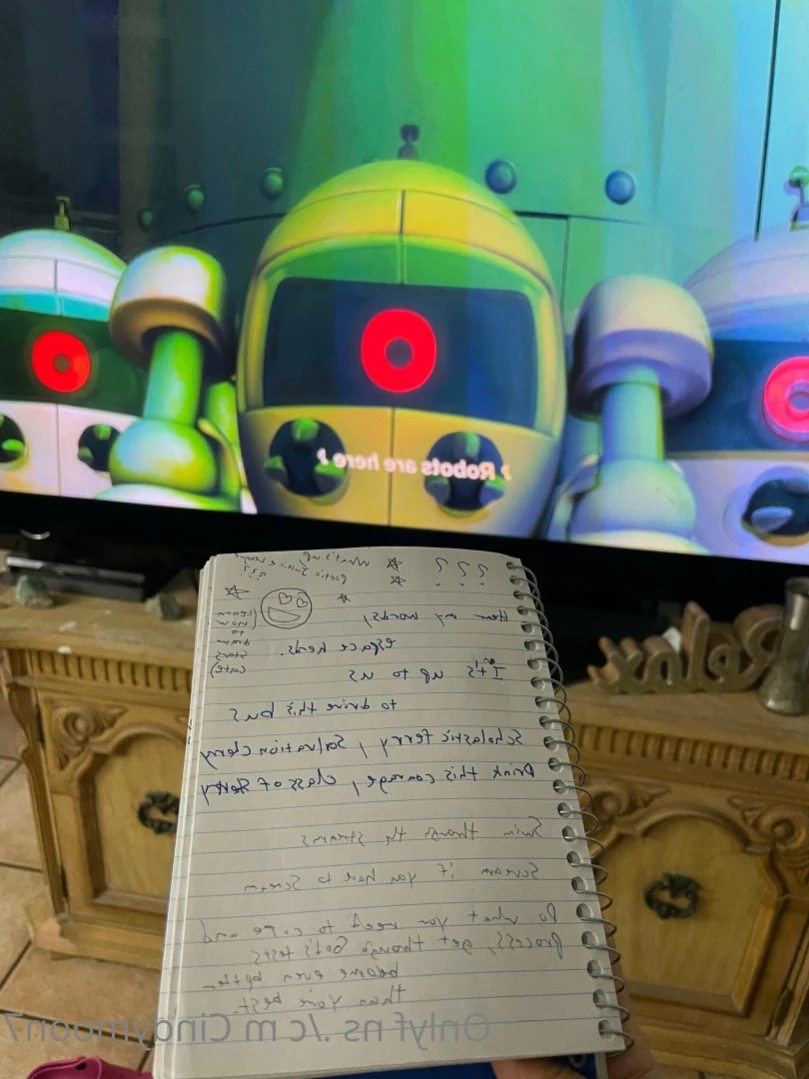 ♪ Robots are here ♪
Relax
? ? ?
What's up,
???
(learn
how
to
draw
stars
cute)
my words,
herds.
It's up to us
to drive this bus
Scholastic ferry, Salvation
Drink this courage, class of
Swim through the streams
Scream if you have to scream
Do what you need to cope and
process, get through God's tests
become even better
than you're best.
Onlyfns./cm Cindymoon7